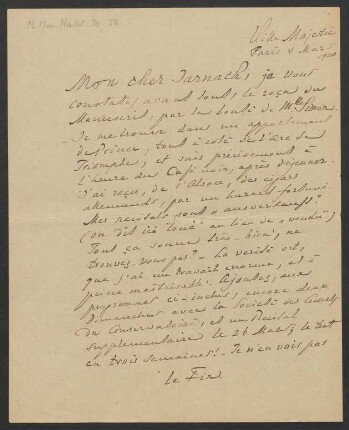 Villa Majestic
Paris 4 Mars
1920
Mon cher Jarnach, je veux
constater, avant tout, le reçu du
Manuscrit, par la bonté de M
Je me trouve dans un appartement
de Prince, tout à coté de l'Arc de
Triomphe, et suis précisement à
l'heure du Café noir, après dejeuner.
J'ai reçu, de l'Alsace, des cigares
allemands, par un hazard fortuné.
Mes recitals sont "ausverkauft"
(on dit ici "loué" au lieu de "vendu")
Tout ça sonne très-bien, ne
trouvez-vous pas? - La verité est,
que j'ai un travail enorme, et à
peine maitrisable. Ajoutez, aux
programmes ci-inclus, encore deux
Dimanches avec la Société des Concerts
du Conservatoire, et un Recital
supplementaire le 26 Mars; le tout
en trois semaines! - Je n'en vois pas
la Fin